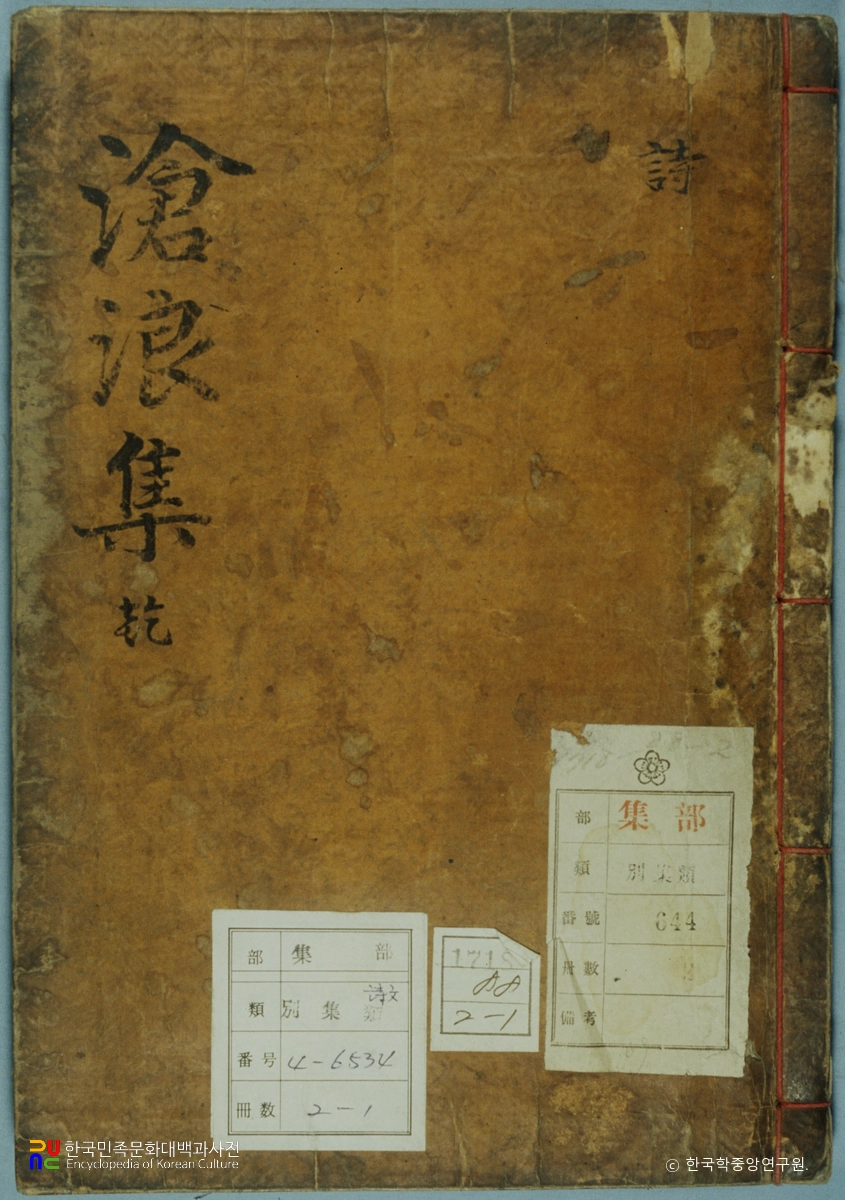 詩
滄浪集 乾
部 集部
類 別集類
番號 644
冊數 2
備考
部 集 部
類 別集類 詩文
番号 4-6534
冊数 2-1
171
2-1
한국민족문화대백과사전
Encyclopedia of Korean Culture
© 한국학중앙연구원.